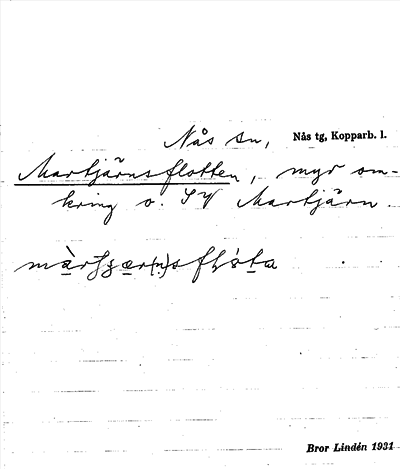 Nås sn, Nås tg, Kopparb. l.
Martjärnsflotten, myr om-
kring o. SV Martjärn.
Bror Lindén 1931